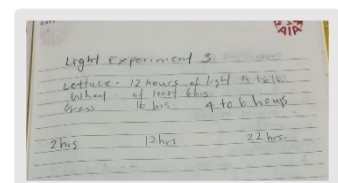 Light Experiment 3
Lettuce - 12 hours of light
Wheat - at least 6 hrs.
Grass 16 hrs 4 to 6 hours
2 hrs 12 hrs 22 hrs.